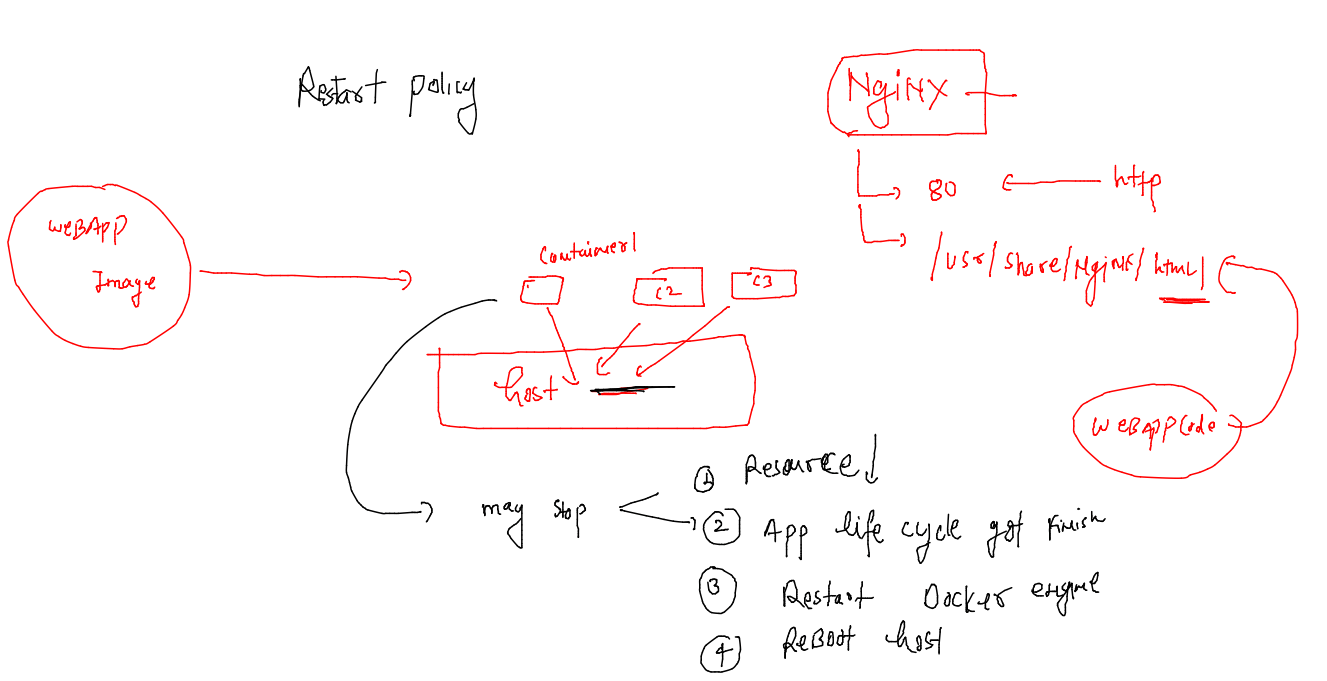 Restart policy
NgiNX
80
http
/usr/share/NgiNX/html
WeBApp
Image
Container1
C2
C3
host
WEBAPPCode
may stop
1 Resource ↓
2 App life cycle got Finish
3 Restart Docker engine
4 ReBoot host